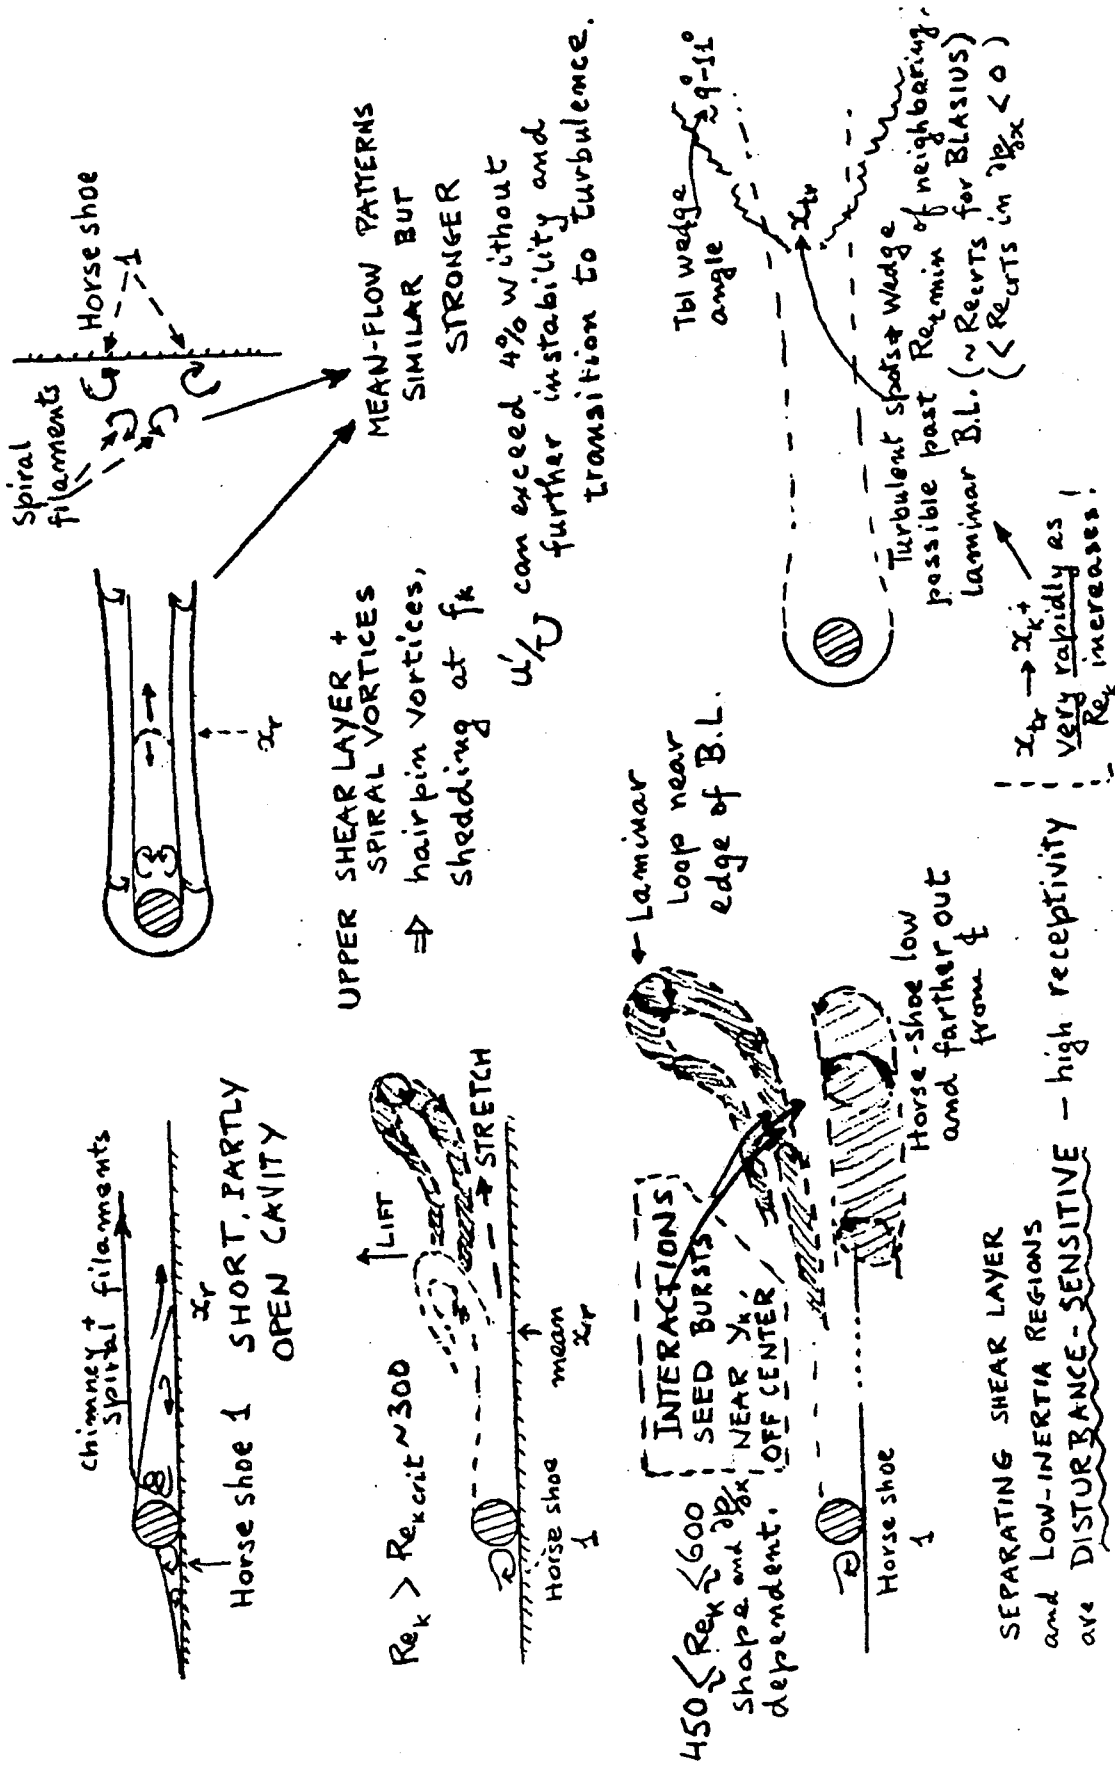 chimney +
spiral filaments
Horse shoe 1
x_r
SHORT, PARTLY
OPEN CAVITY
x_r
spiral
filaments
Horse shoe
1
MEAN-FLOW PATTERNS
SIMILAR BUT
STRONGER
Re_k > Re_k crit ~ 300
LIFT
STRETCH
mean
x_r
Horse shoe
1
UPPER SHEAR LAYER +
SPIRAL VORTICES
⇒ hairpin vortices,
shedding at f_k
u'/U can exceed 4% without
further instability and
transition to turbulence.
450 ≲ Re_k ≲ 600
shape and ∂p/∂x
dependent.
INTERACTIONS
SEED BURSTS
NEAR y_k,
OFF CENTER
Laminar
Loop near
edge of B.L.
Horse shoe
1
Horse-shoe low
and farther out
from ℄
Tbl wedge
angle
≈ 9°-11°
x_tr
Turbulent spots + wedge
possible past Re_t min of neighboring
laminar B.L. (~ Re_crTS for BLASIUS)
(< Re_crTS in ∂p/∂x < 0)
SEPARATING SHEAR LAYER
and LOW-INERTIA REGIONS
are DISTURBANCE-SENSITIVE – high receptivity
x_tr → x_k+
very rapidly as
Re_k increases!